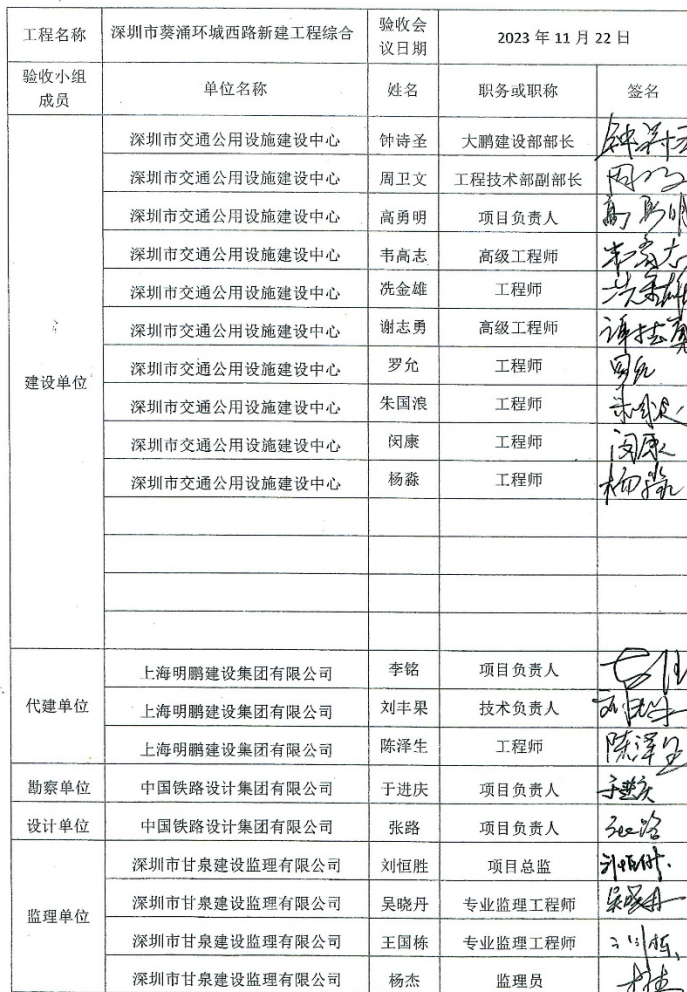 工程名称 深圳市葵涌环城西路新建工程综合 验收会议日期 2023 年 11 月 22 日
验收小组成员 单位名称 姓名 职务或职称 签名
建设单位
深圳市交通公用设施建设中心 钟诗圣 大鹏建设部部长
深圳市交通公用设施建设中心 周卫文 工程技术部副部长
深圳市交通公用设施建设中心 高勇明 项目负责人
深圳市交通公用设施建设中心 韦高志 高级工程师
深圳市交通公用设施建设中心 冼金雄 工程师
深圳市交通公用设施建设中心 谢志勇 高级工程师
深圳市交通公用设施建设中心 罗允 工程师
深圳市交通公用设施建设中心 朱国浪 工程师
深圳市交通公用设施建设中心 闵康 工程师 闵康
深圳市交通公用设施建设中心 杨淼 工程师 杨淼
代建单位
上海明鹏建设集团有限公司 李铭 项目负责人
上海明鹏建设集团有限公司 刘丰果 技术负责人
上海明鹏建设集团有限公司 陈泽生 工程师 陈泽生
勘察单位 中国铁路设计集团有限公司 于进庆 项目负责人
设计单位 中国铁路设计集团有限公司 张路 项目负责人
监理单位
深圳市甘泉建设监理有限公司 刘恒胜 项目总监
深圳市甘泉建设监理有限公司 吴晓丹 专业监理工程师
深圳市甘泉建设监理有限公司 王国栋 专业监理工程师
深圳市甘泉建设监理有限公司 杨杰 监理员